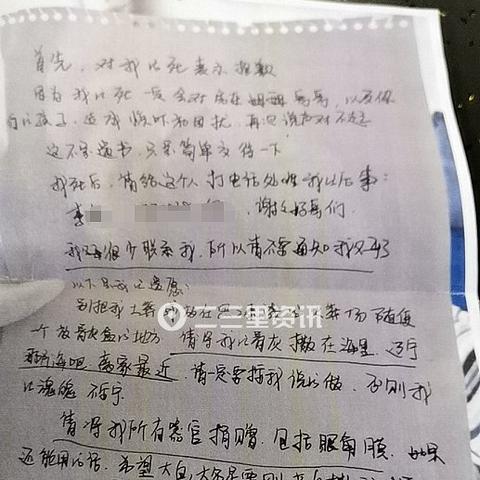 首先，对我的死表示抱歉
因为我的死一定会对房东姐姐哥哥，以及你
们的孩子，造成惊吓和困扰，再次说声对不起
这不是遗书，只是简单交待一下
我死后，请给这个人打电话处理我的后事：
李 谢谢好哥们
我 很少联系我，所以请不要通知我父母了
以下是我的遗愿：
别把我土葬 放在 随便
一个放骨灰盒的地方，请将我的骨灰撒在海里，辽宁
海吧，离家最近，请一定要按我说的做，否则我
的魂魄不宁
请将我所有器官捐赠，包括眼角膜，如果
还能用的话，希望大
二三里资讯